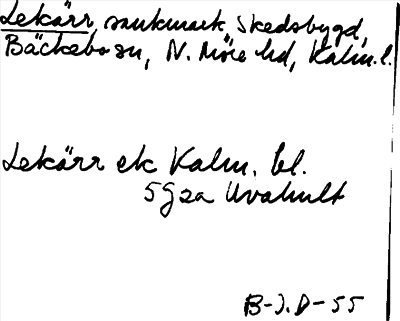 Lekärr, sankmark Skedsbygd,
Bäckebo sn, N. Möre hd, Kalm. l.
Lekärr ek Kalm. bl.
5G2a Uvahult
B-J.D-55